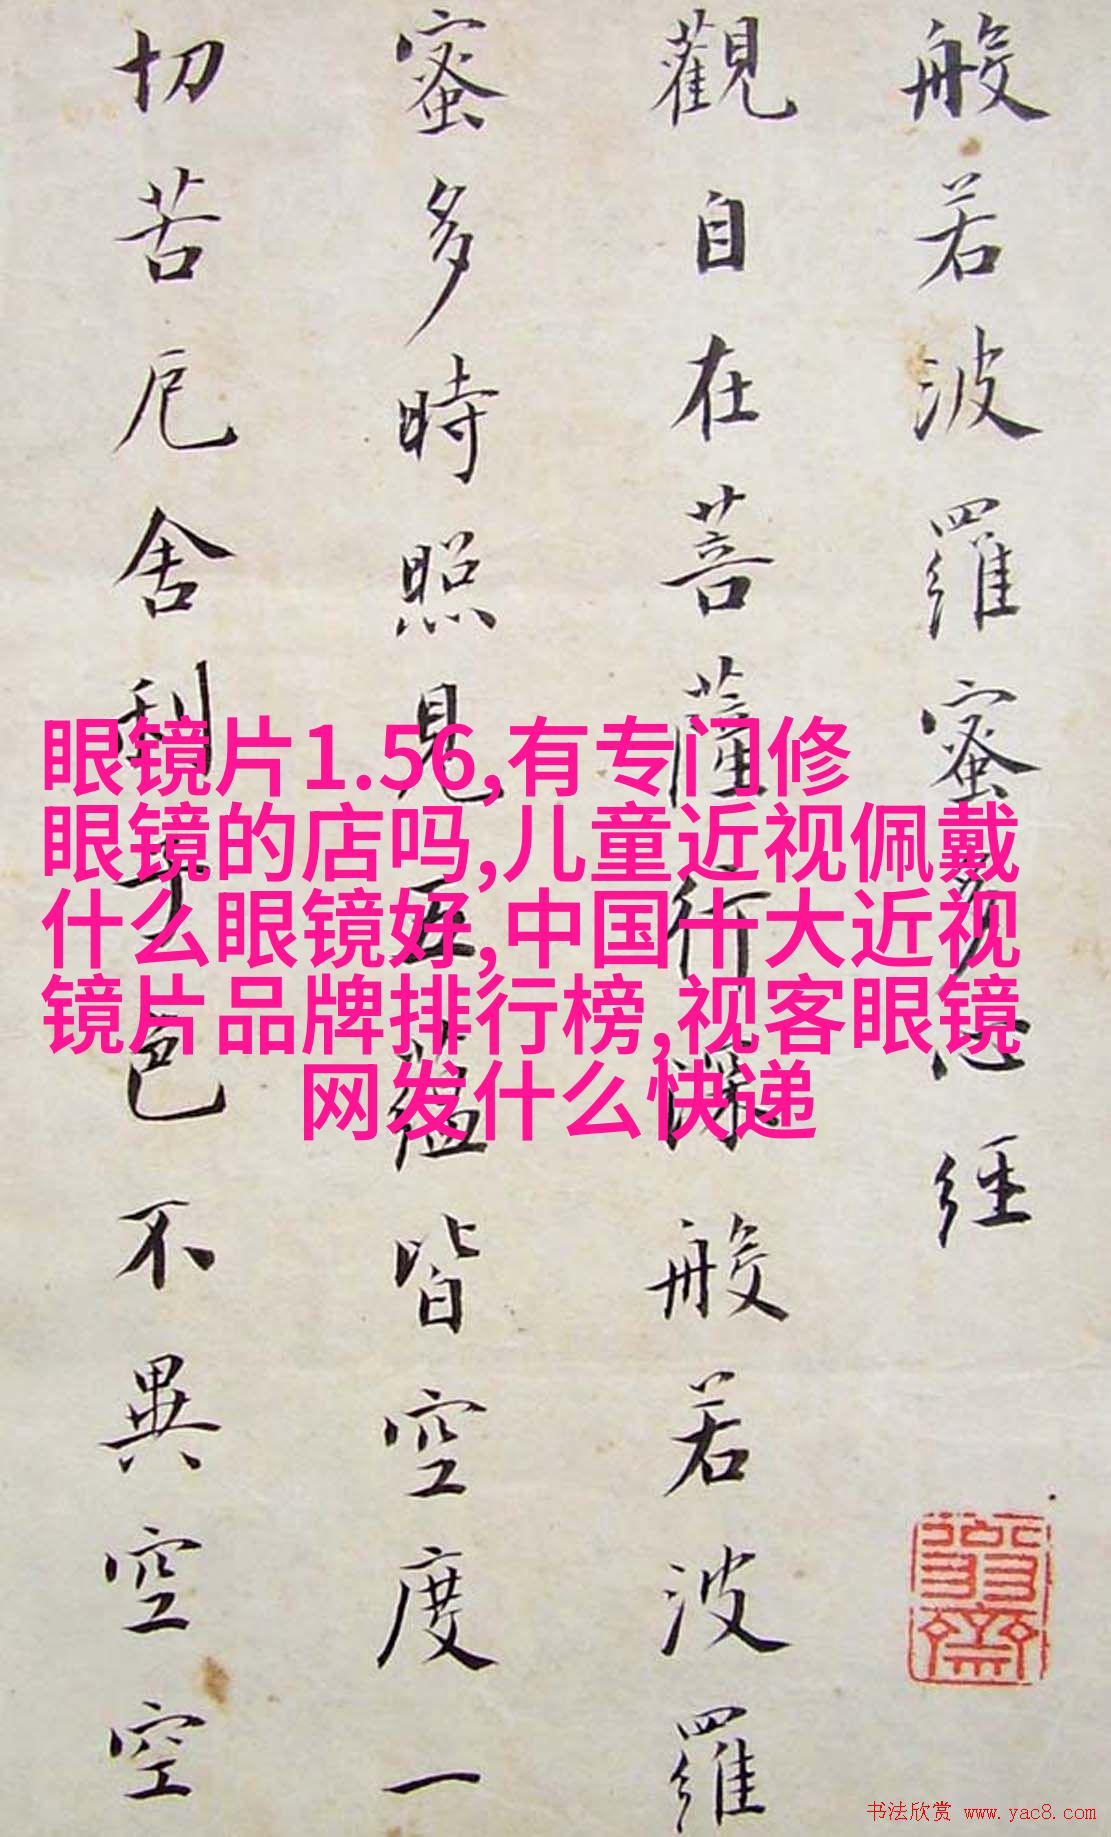 般若波羅蜜多心經
觀自在菩薩行深般若波羅
蜜多時照見五蘊皆空度一
切苦厄舍利子色不異空空
眼镜片1.56,有专门修
眼镜的店吗,儿童近视佩戴
什么眼镜好,中国十大近视
镜片品牌排行榜,视客眼镜
网发什么快递
书法欣赏 www.yac8.com